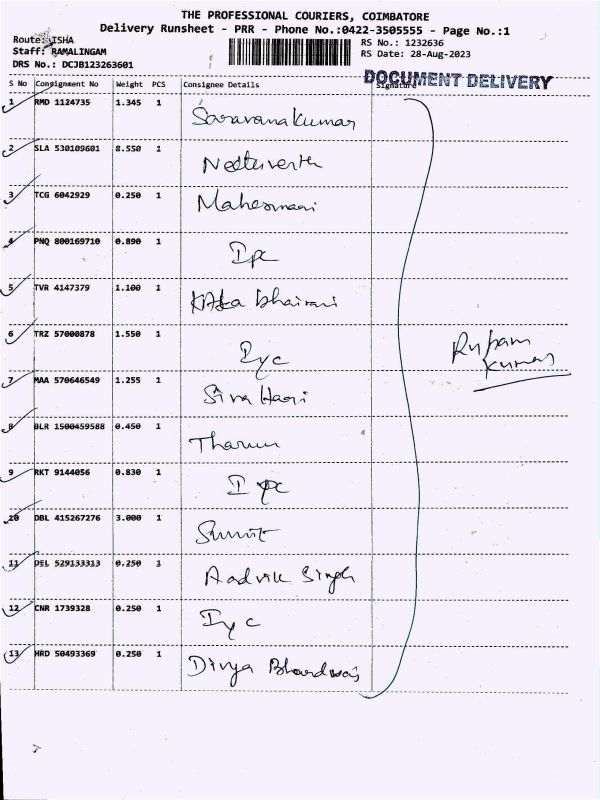 THE PROFESSIONAL COURIERS, COIMBATORE
Delivery Runsheet - PRR - Phone No.:0422-3505555 - Page No.:1
Route: ISHA
Staff: RAMALINGAM
DRS No.: DCJB123263601
RS No.: 1232636
RS Date: 28-Aug-2023
DOCUMENT DELIVERY
S No Consignment No Weight PCS Consignee Details Signature
1 RMD 1124735 1.345 1 Saravana Kumar
2 SLA 530109601 8.550 1
3 TCG 6042929 0.250 1 Maheswari
4 PNQ 800169710 0.890 1
5 TVR 4147379 1.100 1 Bhairavi
6 TRZ 57000878 1.550 1 Iyc
7 MAA 570646549 1.255 1 Siva Hari
8 BLR 1500459588 0.450 1 Tharun
9 RKT 9144056 0.830 1
10 DBL 415267276 3.000 1 Sumit
11 DEL 529133313 0.250 1 Aadvik Singh
12 CNR 1739328 0.250 1 Iyc
13 HRD 50493369 0.250 1 Divya Bhardwaj
Rupam
Kumar